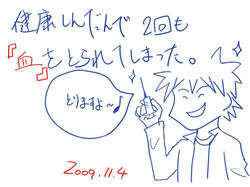 健康しんだんで 2回も
『血』をとられてしまった。
とりますよ～♪
2009.11.4